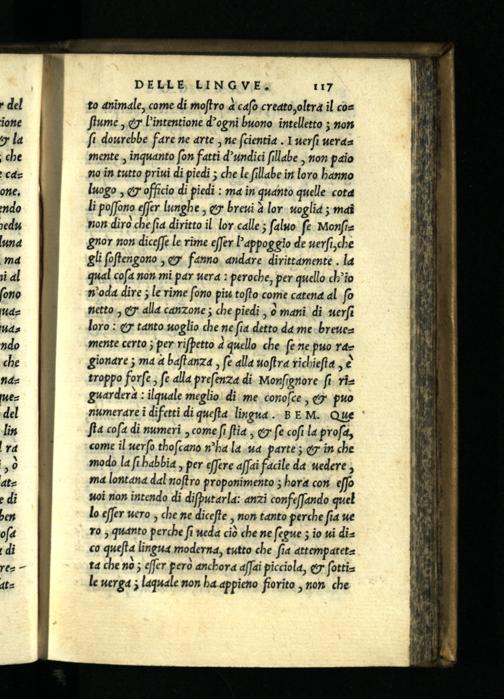 DELLE LINGVE. 117
to animale, come di mostro à caso creato, oltra il co=
stume, & l'intentione d'ogni buono intelletto; non
si dourebbe fare ne arte, ne scientia. I uersi uera=
mente, inquanto son fatti d'undici sillabe, non paio
no in tutto priui di piedi; che le sillabe in loro hanno
luogo, & officio di piedi: ma in quanto quelle cota
li possono esser lunghe, & breui à lor uoglia; mai
non dirò che sia diritto il lor calle; saluo se Monsi=
gnor non dicesse le rime esser l'appoggio de uersi, che
gli sostengono, & fanno andare dirittamente. la
qual cosa non mi par uera: peroche, per quello ch'io
n'oda dire; le rime sono piu tosto come catena al so
netto, & alla canzone; che piedi, ò mani di uersi
loro: & tanto uoglio che ne sia detto da me breue=
mente certo; per rispetto à quello che se ne puo ra=
gionare; ma à bastanza, se alla uostra richiesta, è
troppo forse, se alla presenza di Monsignore si ri=
guarderà: ilquale meglio di me conosce, & puo
numerare i difetti di questa lingua. BEM. Que
sta cosa di numeri, come si stia, & se cosi la prosa,
come il uerso thoscano n'ha la ua parte; & in che
modo la si habbia, per essere assai facile da uedere,
ma lontana dal nostro proponimento; hora con esso
uoi non intendo di disputarla: anzi confessando quel
lo esser uero, che ne diceste, non tanto perche sia ue
ro, quanto perche si ueda ciò che ne segue; io ui di=
co questa lingua moderna, tutto che sia attempatet=
ta che nò; esser però anchora assai picciola, & sotti=
le uerga; laquale non ha appieno fiorito, non che